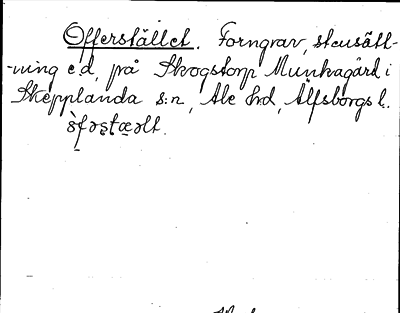 Offerstället. Forngrav, stensätt-
-ning e d, på Skogstorp Munkagård i
Skepplanda s:n, Ale hd, Älfsborgs l.